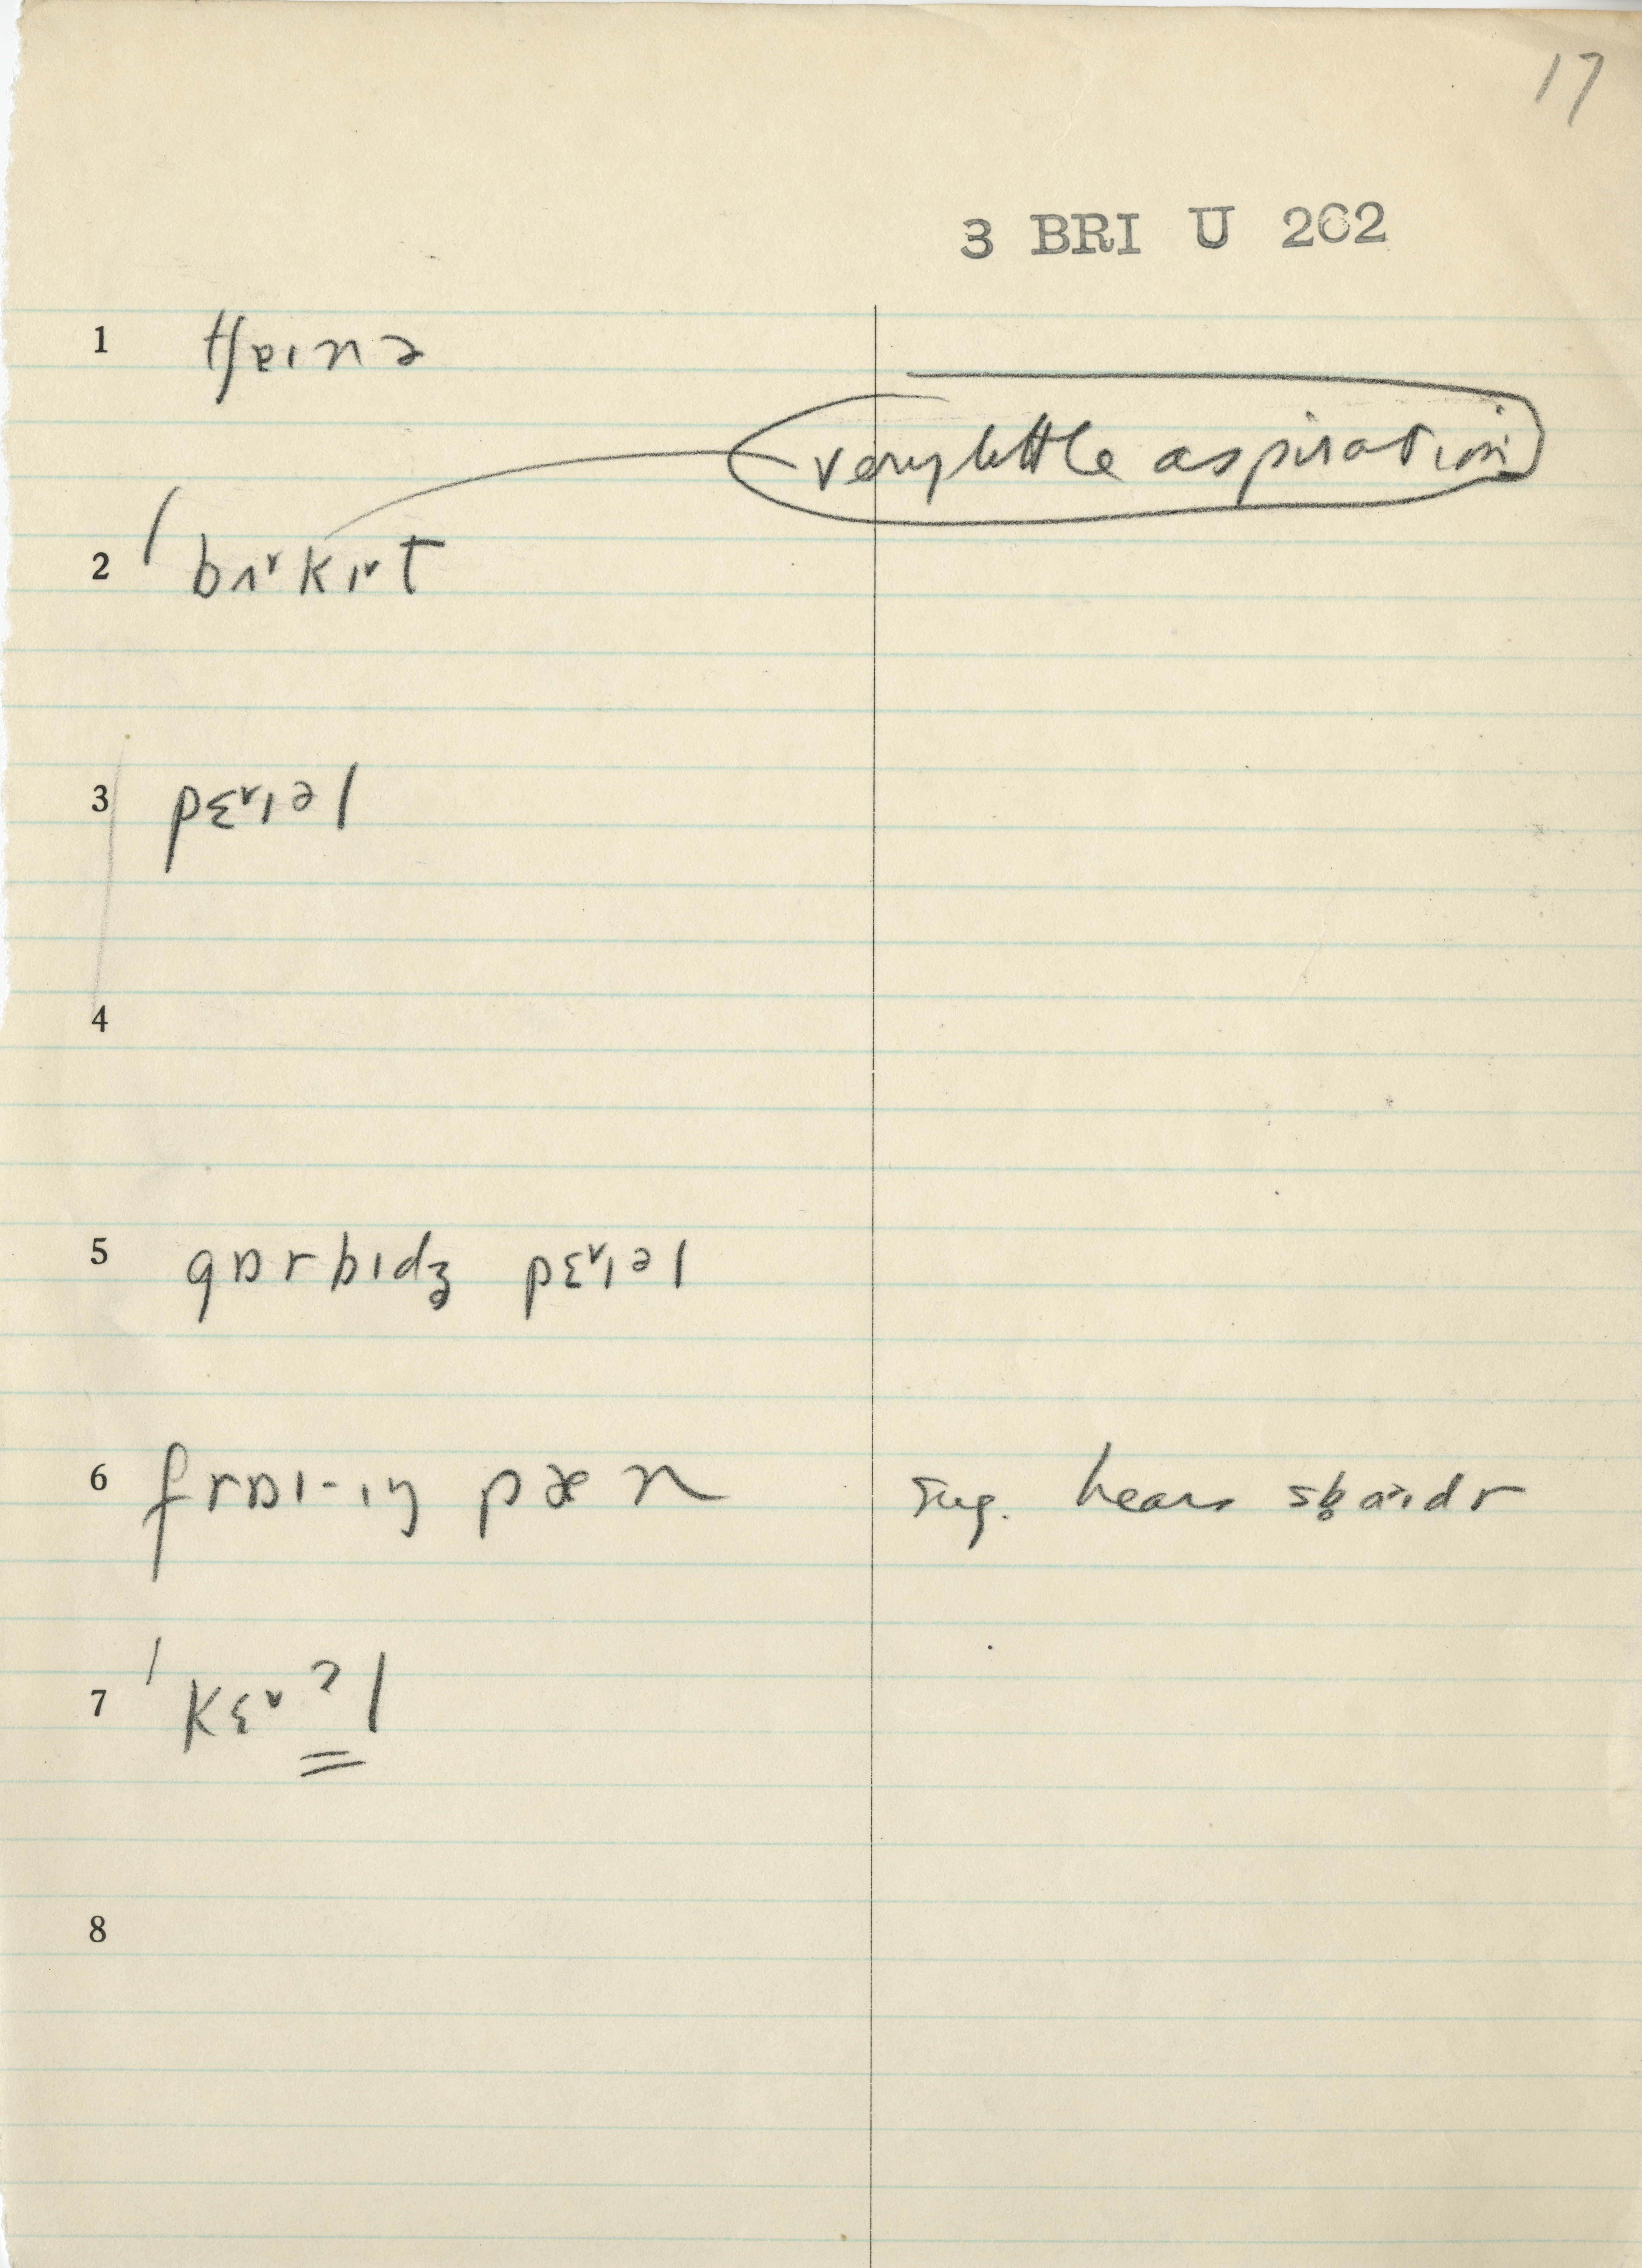 17
3 BRI U 262
1 tʃɐɪnə
very little aspiration
2 ˈbʌ˅kɪ˅t
3 pɛ˅ɪəl
4
5 gɒrbɪdʒ pɛ˅ɪəl
6 frɒɪ-ɪŋ pæn sug. hears
7 ˈkɛ˅ʔl
8